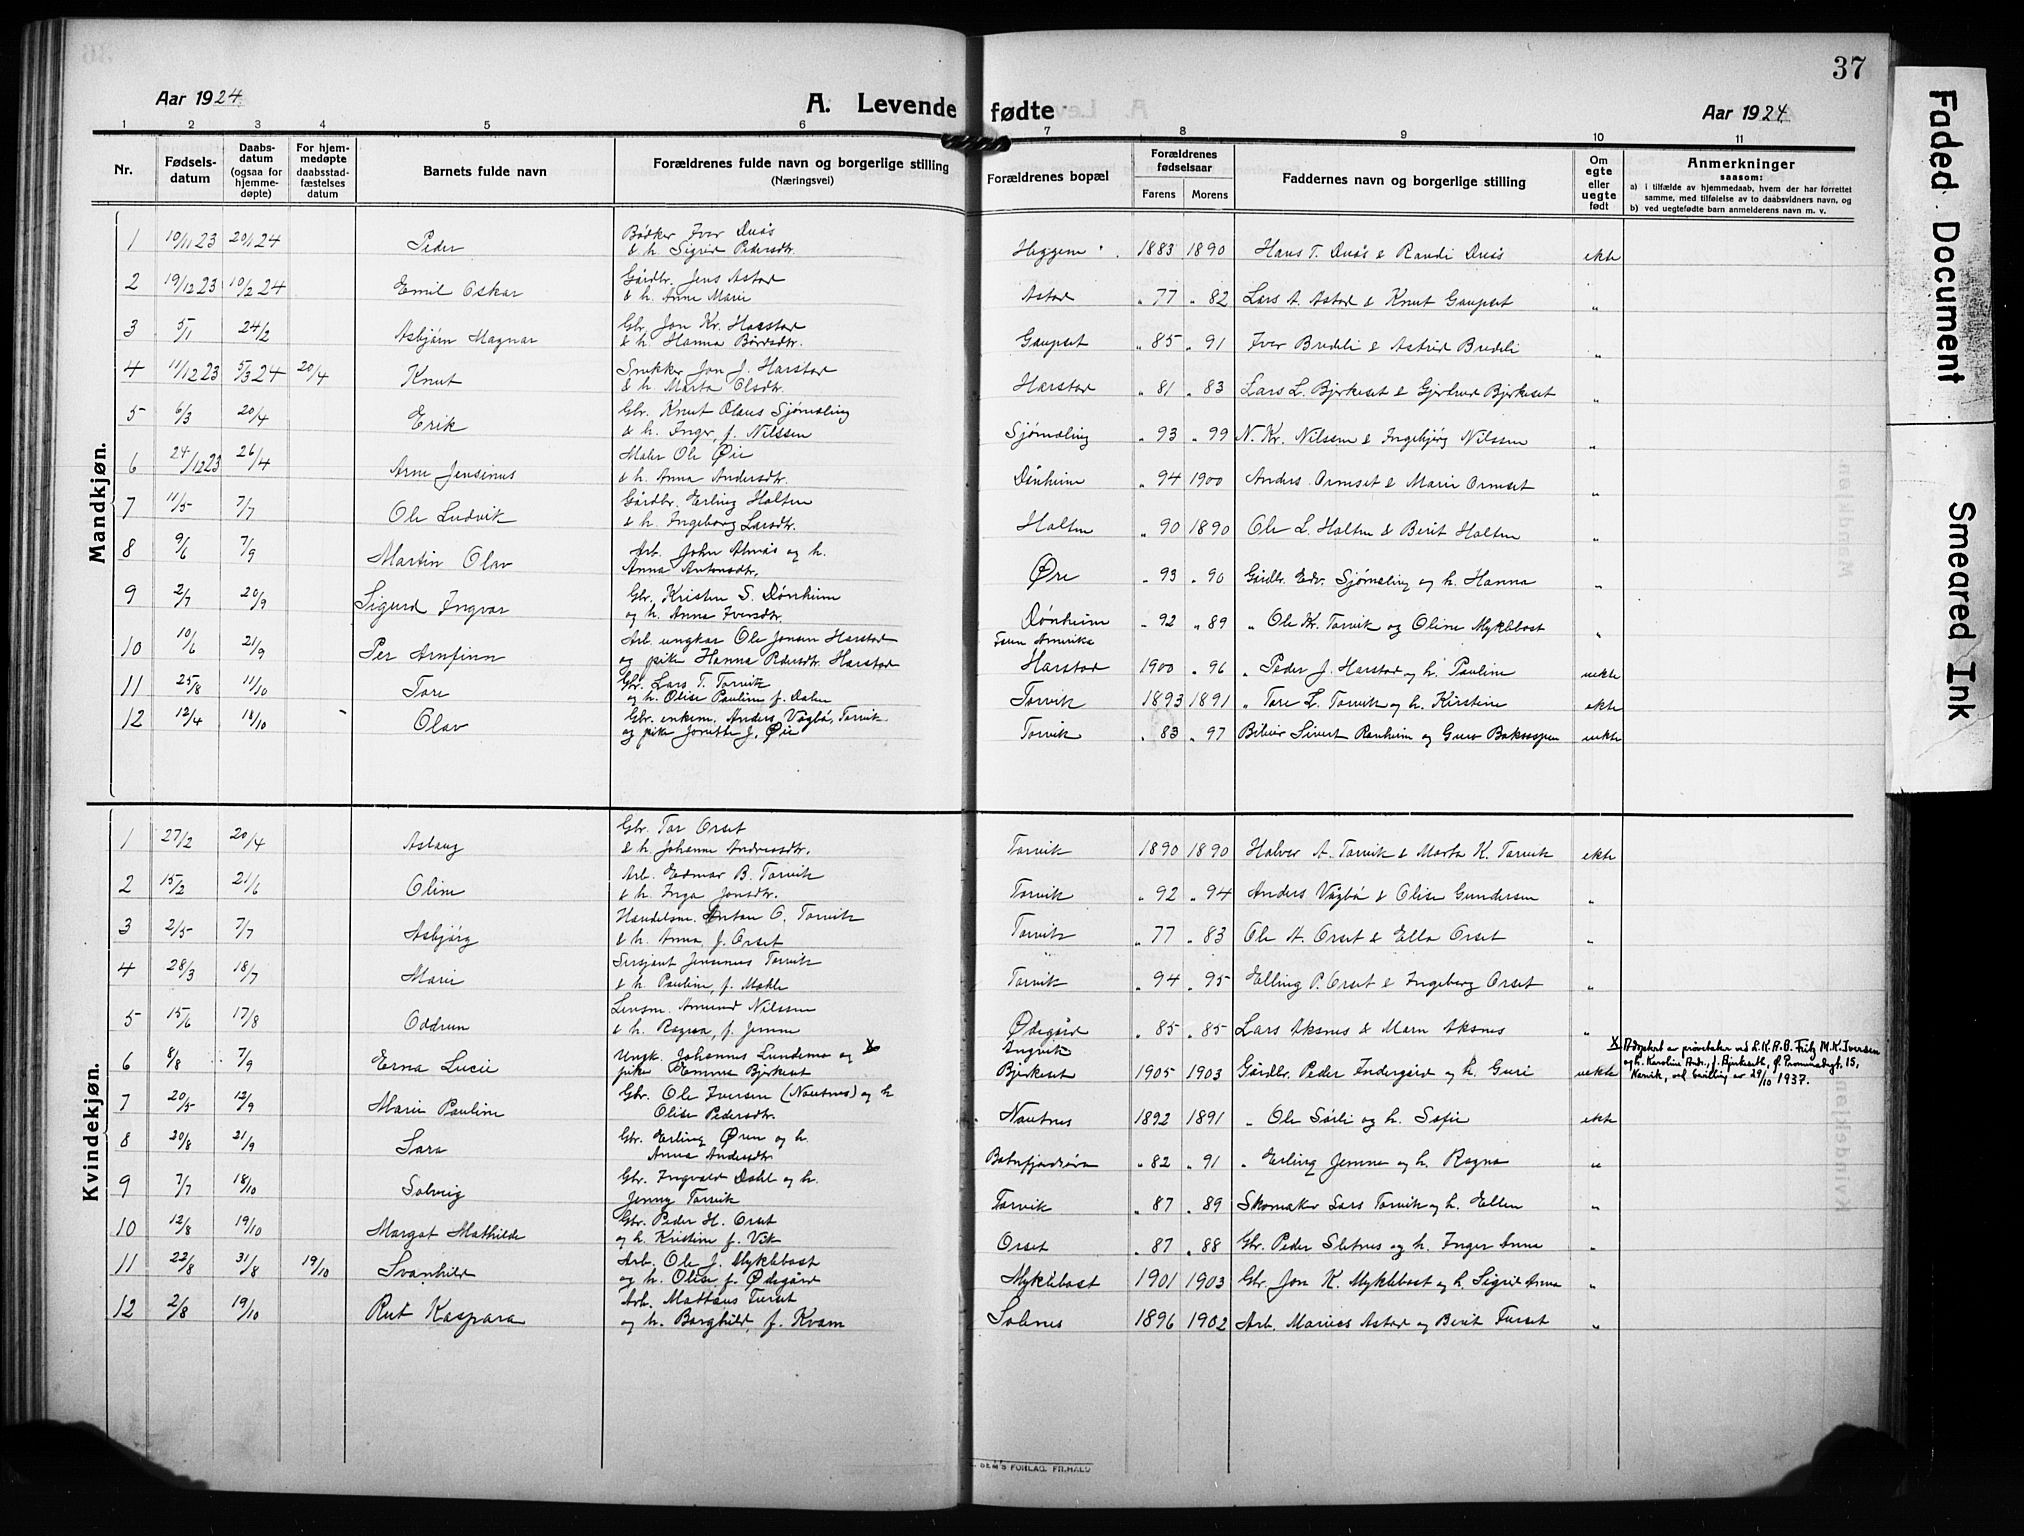 37
Aar 1924.
A. Levende fødte
Aar 1924.
1 2 3 4 5 6 7 8 9 10 11
Nr.
Fødsels-datum
Daabs-datum (ogsaa for hjemme-døpte)
For hjem-medøpte daabsstad-fæstelses datum
Barnets fulde navn
Forældrenes fulde navn og borgerlige stilling
(Næringsvei)
Forældrenes bopæl
Forældrenes fødselsaar
Farens Morens
Faddernes navn og borgerlige stilling
Om egte eller uegte født
Anmerkninger
saasom:
a) i tilfælde av hjemmedaab, hvem der har forrettet
samme, med tilføielse av to daabsvidners navn, og
b) ved uegtefødte barn anmelderens navn m. v.
Mandkjøn.
1 10/11 23 20/1 24 Peder Bødker Iver Duås
& h. Sigrid Pedersdtr. Heggem 1883 1890 Hans T. Duås & Randi Duås ekte
2 19/12 23 10/2 24 Emil Oskar Gårdbr. Jens Astad
& h. Anne Marie Astad „ 77 „ 82 Lars A. Astad & Knut Gaupset „
3 5/1 24/2 Asbjørn Magnar Gbr. Jon Kr. Harstad
& h. Hanna Bårdsdtr. Gaupset „ 85 „ 91 Iver Bredeli & Astrid Bredeli „
4 11/12 23 5/3 24 20/4 Knut Snekker Jon J. Harstad
& h. Marta Olsdtr. Harstad „ 81 „ 83 Lars L. Bjerkeset & Gjertrud Bjerkeset „
5 6/3 20/4 Erik Gbr. Knut Olaus Sjømæling
& h. Inger, f. Nilssen Sjømæling „ 93 „ 99 N. Kr. Nilssen & Ingebjørg Nilssen „
6 24/12 23 26/4 Arne Jensinus Maler Ole Øie
& h. Anna Andersdtr. Dønheim „ 94 1900 Anders Ormset & Marie Ormset „
7 11/5 7/7 Ole Ludvik Gårdbr. Erling Holten
& h. Ingeborg Larsdtr. Holten „ 90 1890 Ole L. Holten & Berit Holten „
8 9/6 7/9 Martin Olav Arb. John Alnås og h.
Anna Antonsdtr. Øre „ 93 „ 90 Gårdbr. Edv. Sjømæling og h. Hanna „
9 2/7 20/9 Sigurd Ingvar Gbr. Kristen S. Dønheim
og h. Anna Iversdtr. Dønheim „ 92 „ 89 „ Ole Kr. Torvik og Oline Myklebost „
10 10/6 21/9 Per Arnfinn Arb. ungkar Ole Jonsen Harstad
og pike Hanna Pedersdtr. Harstad Faren Amerika
Harstad 1900 „ 96 „ Peder J. Harstad og h. Pauline uekte
11 25/8 11/10 Tore Gbr. Lars T. Torvik
og h. Olise Pauline f. Dalen Torvik 1893 1891 „ Tore L. Torvik og h. Kirstine ekte
12 12/4 18/10 Olav Gbr. enkem. Anders Vågbø, Torvik
og pike Jonette J. Øie Torvik „ 83 „ 97 Bileier Sivert Ranheim og Guro uekte
Kvindekjøn.
1 27/2 20/4 Aslaug Gbr. Tor Orset
& h. Johanne Andreasdtr. Torvik 1890 1890 Halvor A. Torvik & Marta K. Torvik ekte
2 15/2 21/6 Oline Arb. Edmar B. Torvik
& h. Inga Jonsdtr. Torvik „ 92 „ 94 Anders Vågbø & Olise Gundersen „
3 2/5 7/7 Asbjørg Handelsm. Anton O. Torvik
& h. Anna, f. Orset Torvik „ 77 „ 83 Ole A. Orset & Ella Orset „
4 28/3 18/7 Marie Sersjant Jensenius Torvik
& h. Pauline, f. Mæhle Torvik „ 94 „ 95 Elling P. Orset & Ingeborg Orset „
5 15/6 17/8 Oddrun Lensm. Amund Nilssen
& h. Ragna, f. Jemne Ødegård „ 85 „ 85 Lars Aksnes & Marn Aksnes „
6 8/8 7/9 Erna Lucie Ungk. Johannes Lundemo og X
pike Emma Bjerkeset Angvik
Bjerkeset 1905 1903 Gårdbr. Peder Indergård og h. Guri uekte X Adoptert av prøvetaker ved L.K.A.B. Fritz M.K. Iversen
og h. Karoline Andr., f. Bjerkseth, f. Promenadegt. 15,
Narvik, ved bevilling av 29/10 1937.
7 20/5 12/9 Marie Pauline Gbr. Ole Iversen (Nautnes) og h
Olise Pedersdtr. Nautnes 1892 1891 „ Ole Sørli og h. Sofie ekte
8 20/8 21/9 Sara Gbr. Erling Øren og h.
Anna Andersdtr. Batnfjordsøra „ 82 „ 91 „ Erling Jemne og h. Ragna „
9 7/7 18/10 Solveig Gbr. Ingvald Dahl og h.
Jenny Torvik Torvik „ 87 „ 89 Skomaker Lars Torvik og h. Ellen „
10 12/8 19/10 Margot Mathilde Gbr. Peder H. Orset
og h. Kristine f. Vik Orset „ 87 „ 88 Gbr. Peder Sletnes og h. Inger Anna „
11 22/8 31/8 19/10 Svanhild Arb. Ole J. Myklebost
og h. Olise, f. Ødegård Myklebost 1901 1903 Gbr. Jon K. Myklebost og h. Sigrid Anna „
12 2/8 19/10 Rut Kaspara Arb. Mattæus Furset
og h. Borghild, f. Kvam Solsnes 1896 1902 Arb. Marius Astad og Berit Furset „
DEM'S FORLAG. FR.HALD
Faded Document
Smeared Ink